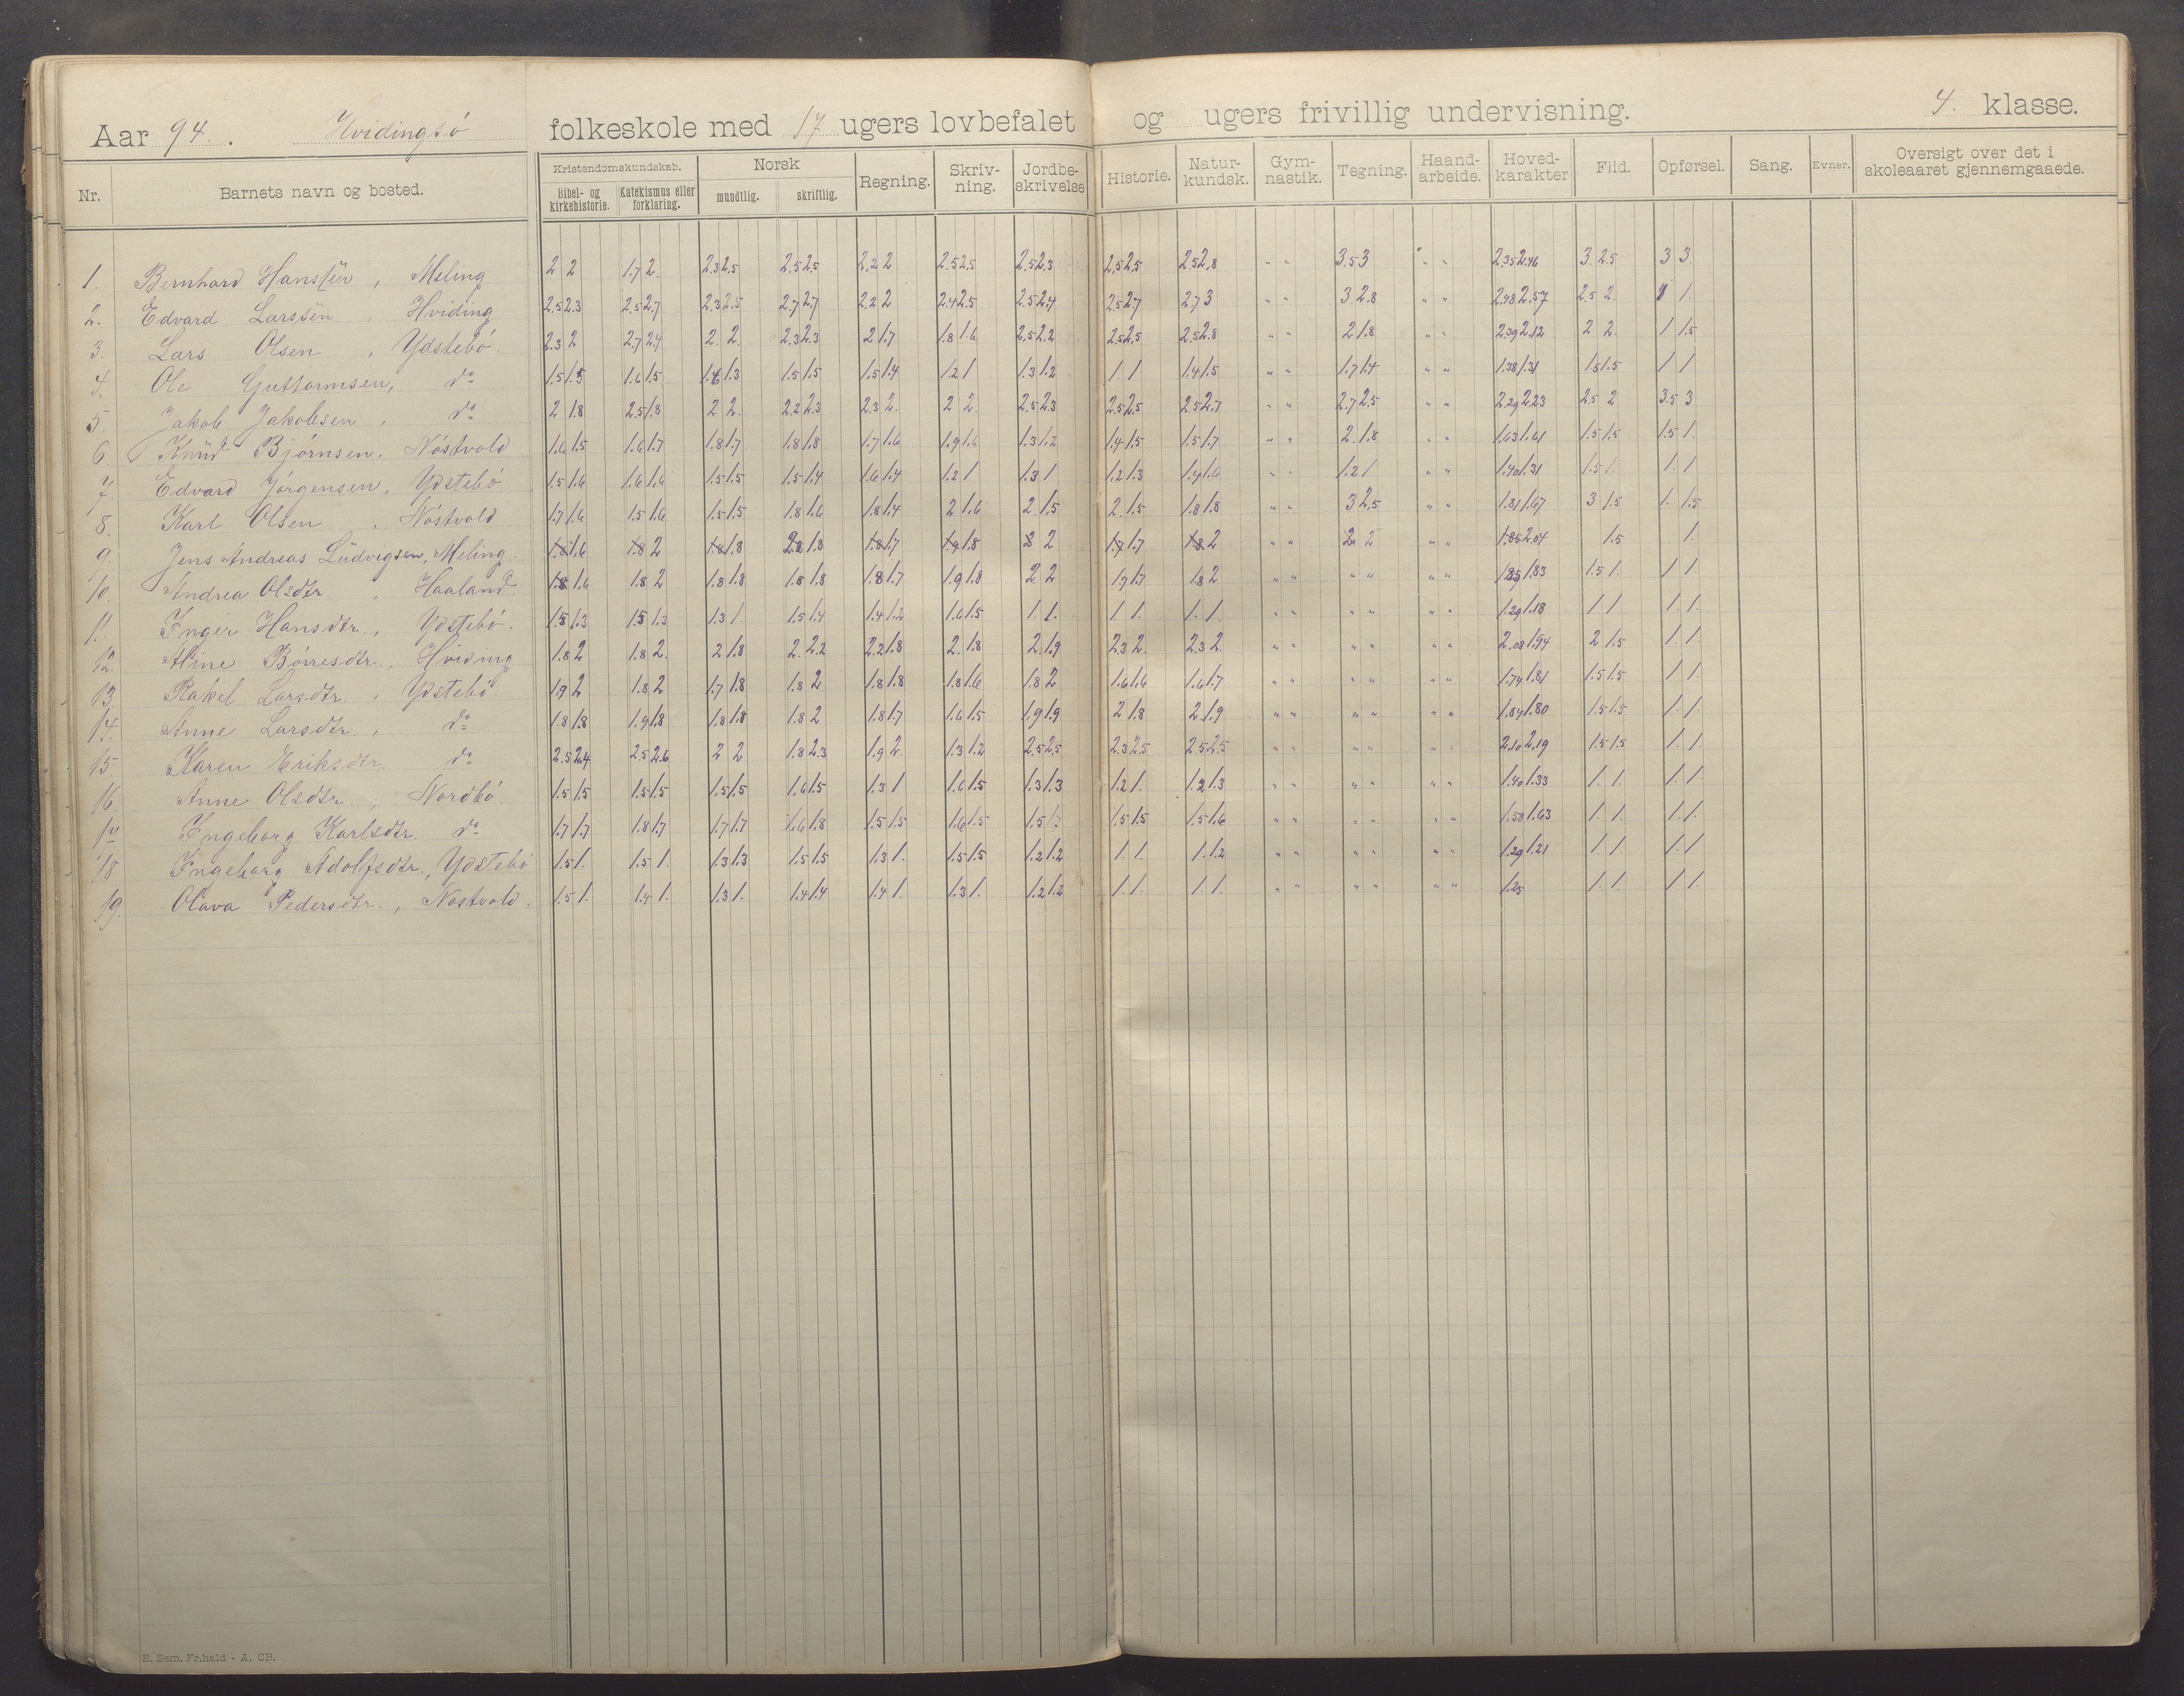 Aar 94. Hvidingsö folkeskole med 17 ugers lovbefalet og ugers frivillig undervisning. 4. klasse.
Nr. Barnets navn og bosted. Kristendomskundskab. Bibel- og kirkehistorie. Katekismus eller forklaring. Norsk mundtlig. skriftlig. Regning. Skriv-ning. Jordbe-skrivelse Historie. Natur-kundsk. Gym-nastik. Tegning. Haand-arbeide. Hoved-karakter Flid. Opførsel. Sang. Evner. Oversigt over det i skoleaaret gjennemgaaede.
1. Bernhard Hansen, Meling 2 2 1.7 2. 2.3 2.5 2.5 2.5 2.2 2 2.5 2.5 2.5 2.3 2.5 2.5 2.5 2.8 " " 3.5 3 " " 2.35 2.46 3. 2.5 3 3
2. Edvard Larsen, Hviding 2.5 2.3 2.5 2.7 2.3 2.5 2.7 2.7 2.2 2 2.4 2.5 2.5 2.4 2.5 2.7 2.7 3 " " 3 2.8 " " 2.48 2.57 2.5 2. 1 1.
3. Lars Olsen, Ydstebö 2.3 2 2.7 2.4 2. 2. 2.3 2.3 2 1.7 1.8 1.6 2.5 2.2 2.5 2.5 2.5 2.8 " " 2 1.8 " " 2.39 2.12 2 2. 1 1.5
4. Ole Guttormsen, do 1.5 1.5 1.6 1.5 1.6 1.3 1.5 1.5 1.5 1.4 1.2 1 1.3 1.2 1. 1 1.4 1.5 " " 1.7 1.4 " " 1.38 1.31 1.5 1.5 1 1
5. Jakob Jakobsen, do 2 1.8 2.5 1.8 2 2. 2.2 2.3 2.3 2. 2 2. 2.5 2.3 2.5 2.5 2.5 2.7 " " 2.7 2.5 " " 2.29 2.23 2.5 2 3.5 3
6. Knud Björnsen, Nöstvold 1.6 1.5 1.6 1.7 1.8 1.7 1.8 1.8 1.7 1.6 1.9 1.6 1.3 1.2 1.4 1.5 1.5 1.7 " " 2. 1.8 " " 1.63 1.61 1.5 1.5 1.5 1.
7. Edvard Jörgensen, Ydstebö 1.5 1.6 1.6 1.6 1.5 1.5 1.5 1.4 1.6 1.4 1.2 1 1.3 1 1.2 1.3 1.4 1.6 " " 1.2 1 " " 1.40 1.31 1.5 1. 1. 1
8. Karl Olsen, Nöstvold 1.7 1.6 1.5 1.6 1.5 1.5 1.8 1.6 1.8 1.4 2 1.6 2 1.5 2. 1.5 1.8 1.8 " " 3 2.5 " " 1.81 1.67 3 1.5 1. 1.5
9. Jens Andreas Ludvigsen, Meling. 1.8 1.6 1.8 2 1.8 1.8 2.2 1.8 1.8 1.7 1.9 1.8 2 2 1.7 1.7 1.8 2 " " 2. 2 " " 1.85 2.04 1.5 1.
10. Andrea Olsdtr., Haaland 1.8 1.6 1.8 2 1.8 1.8 1.8 1.8 1.8 1.7 1.9 1.8 2 2 1.7 1.7 1.8 2 " " " " " " 1.85 1.83 1.5 1. 1 1.
11. Inger Hansdtr., Ydstebö. 1.5 1.3 1.5 1.3 1.3 1. 1.5 1.4 1.4 1.2 1.6 1.5 1. 1. 1. 1. 1. 1. " " " " " " 1.29 1.18 1 1 1. 1.
12. Aline Börresdtr., Hviding 1.8 2 1.8 2. 2 1.8 2. 2.2 2.2 1.8 2. 1.8 2. 1.9 2.3 2. 2.3 2. " " " " " " 2.08 1.94 2 1.5 1. 1.
13. Rakel Larsdtr., Ydstebö. 1.9 2 1.8 2 1.7 1.8 1.8 2 1.8 1.8 1.8 1.6 1.8 2 1.6 1.6 1.6 1.7 " " " " " " 1.74 1.81 1.5 1.5 1 1.
14. Anne Larsdtr., do 1.8 1.8 1.9 1.8 1.8 1.8 1.8 2 1.8 1.7 1.6 1.5 1.9 1.9 2 1.8 2 1.9 " " " " " " 1.84 1.80 1.5 1.5 1. 1.
15. Karen Eriksdtr. do 2.5 2.4 2.5 2.6 2 2 1.8 2.3 1.9 2. 1.3 1.2 2.5 2.5 2.3 2.5 2.5 2.5 " " " " " " 2.10 2.19 1.5 1.5 1. 1.
16. Anne Olsdtr., Nordbö. 1.5 1.5 1.5 1.5 1.5 1.5 1.6 1.5 1.3 1 1.6 1.5 1.3 1.3 1.2 1. 1.2 1.3 " " " " " " 1.40 1.33 1. 1. 1. 1.
17 Ingeborg Karlsdtr. do 1.7 1.7 1.8 1.7 1.7 1.7 1.6 1.8 1.5 1.5 1.6 1.5 1.5 1.7 1.5 1.5 1.5 1.6 " " " " " " 1.58 1.63 1. 1. 1. 1.
18 Ingeborg Adolfsdtr., Ydstebö 1.5 1. 1.5 1. 1.3 1.3 1.5 1.5 1.3 1. 1.5 1.5 1.2 1.2 1. 1. 1. 1.2 " " " " " " 1.29 1.21 1. 1. 1. 1
19. Olava Pedersdtr., Nöstvold. 1.5 1. 1.4 1. 1.3 1. 1.4 1.4 1.4 1. 1.3 1. 1.2 1.2 1. 1. 1. 1. " " " " " " 1.25 1. 1. 1 1.
E. Sem. Fr.hald - A. CB.